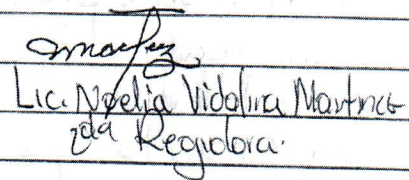 Lic. Noelia Vidalina Martinez
2da Regidora.